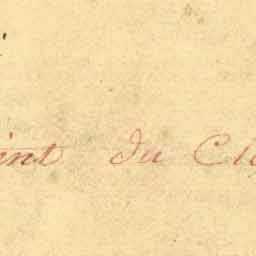 int du Cl